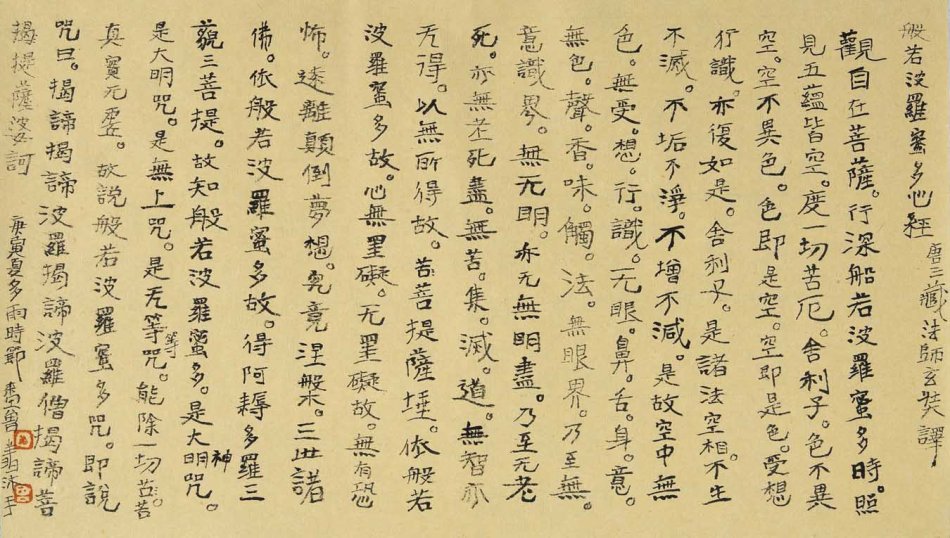 般若波羅蜜多心經 唐三藏法師玄奘譯
觀自在菩薩。行深般若波羅蜜多時。照
見五蘊皆空。度一切苦厄。舍利子。色不異
空。空不異色。色即是空。空即是色。受想
行識。亦復如是。舍利子。是諸法空相。不生
不滅。不垢不淨。不增不減。是故空中無
色。無受。想。行。識。无眼。鼻。舌。身。意。
無色。聲。香。味。觸。法。無眼界。乃至無
意識界。無无明。亦无無明盡。乃至无老
死。亦無老死盡。無苦。集。滅。道。無智亦
无得。以無所得故。菩提薩埵。依般若
波羅蜜多故。心無罣礙。无罣礙故。無有恐
怖。遠離顛倒夢想。究竟涅槃。三世諸
佛。依般若波羅蜜多故。得阿耨多羅三
藐三菩提。故知般若波羅蜜多。是大神明咒。
是大明咒。是無上咒。是无等等咒。能除一切苦。
真實无虛。故說般若波羅蜜多咒。即說
咒曰。揭諦揭諦波羅揭諦波羅僧揭諦菩
揭提薩婆訶 庚寅夏多雨時節